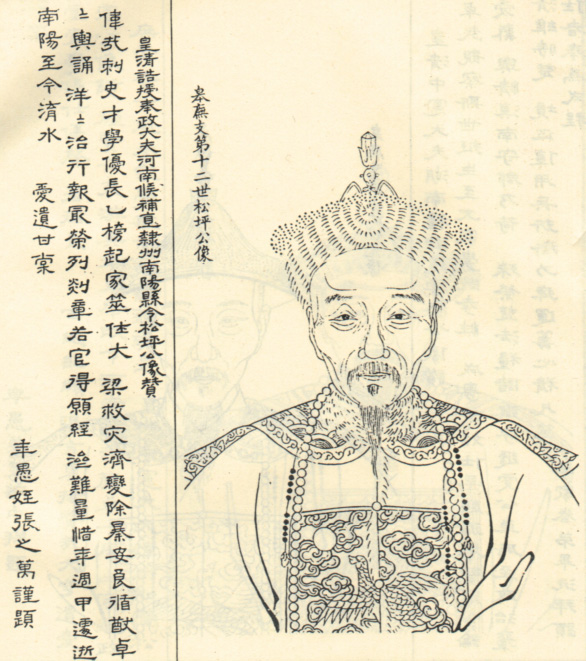 皋蕪支第十二世松坪公像
皇清誥授奉政大夫河南候補直隸州南陽縣令松坪公像贊
偉哉刺史才學優長乙榜起家筮仕大 梁救灾濟變除暴安良循猷卓
〻輿誦 洋〻治行報最榮列剡章若官得願經 濟難量惜年週甲遽逝
南陽至今淯水 愛遺甘棠
年愚姪張之萬謹題